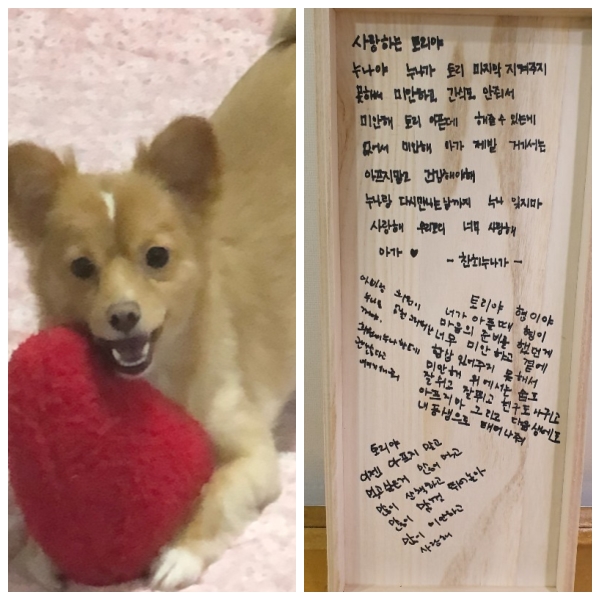 사랑하는 토리야
누나야 누나가 토리 마지막 지켜주지
못해서 미안하고 간식도 안줘서
미안해 토리 아픈데 해줄수 있는게
없어서 미안해 아가 제발 거기서는
아프지말고 건강해야해
누나랑 다시만나는날까지 누나 잊지마
사랑해 우리토리 너무 사랑해
아가 ♥ - 찬희누나가 -
토리야 형이야
너가 아플때 형이
마음의 준비를 했던게
너무 미안하고 곁에
함께 있어주지 못해서
미안해 위에서는 숨도
잘쉬고 잘뛰고 친구도 사귀고
아프지마 그리고 다음생에도
내 동생으로 태어나줘
토리야
이젠 아프지 말고
먹고싶은거 많이 먹고
많이 산책하고 뛰어놀아
많이
많이 미안하고
많이 사랑해